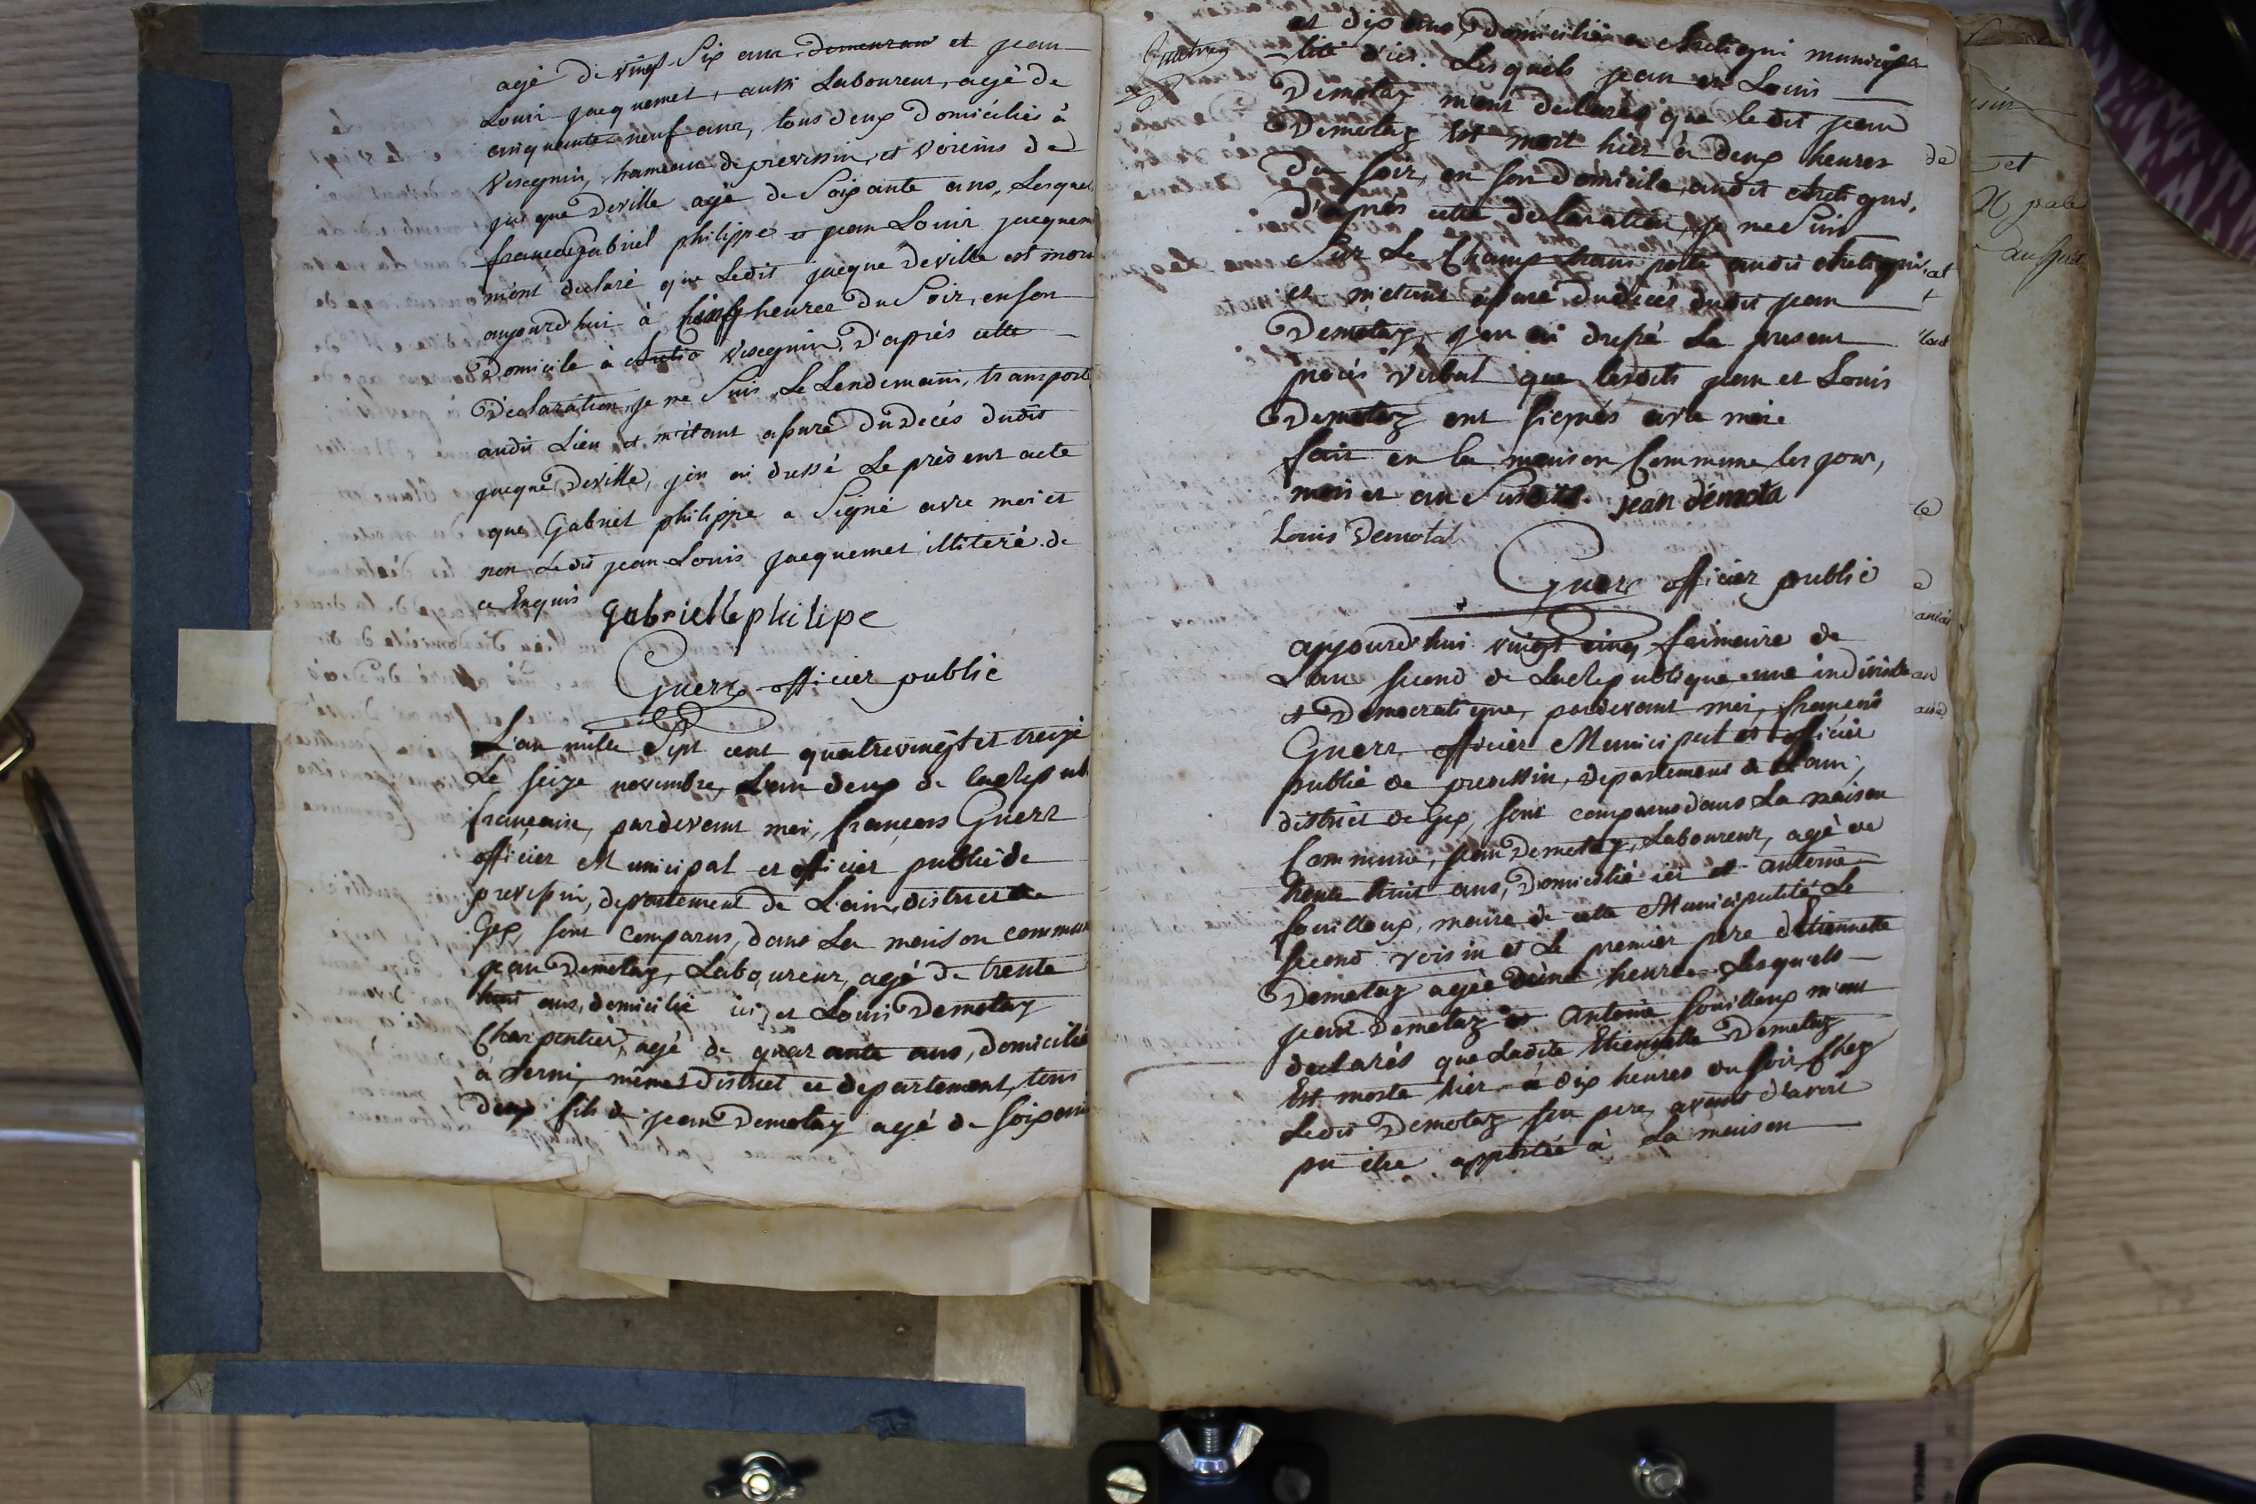 agé de vingt-six ans demeurant et jean
Louis jacquemet, aussi Laboureur, agé de
cinquante neuf ans, tous deux domiciliés à
Vesegnin, hameau de prevessin, et voisins de
jacque Deville agé de soixante ans, Lesquels
françois gabriel philippe et jean Louis jacquem
mont declaré que Ledit jacque deville est mort
aujourd'hui à cinq heures du Soir, en son
Domicile à Vesegnin, D'après cette
Déclaration je me suis Le Lendemain, transporté
audit Lieu et m'étant assuré du Decés dudit
jacque Deville, j'en ai dressé Le présent acte
que Gabriel philippe a Signé avec moi et
non Ledit jean Louis jacquemet illiteré de
ce Enquis gabriellephilipe
Guerr officier public
L'an mille sept cent quatrevingt et treize
Le seize novembre, L'an deux de la republ
française, pardevant moi, françois Guerr
officier Municipal et officier public de
prevessin, departement de L'ain, district de
Gex, sont comparus, dans La maison commune
jean Demotaz, Laboureur, agé de trente
huit ans, domicilié ici, et Louis Demotaz
Charpentier, agé de quarante ans, domicilié
à Verni, même District et departement, tous
deux fils de jean Demotaz agé de soixante
et dix ans, domicilié a municipa
-lité d'ici. Lesquels jean et Louis
Demotaz mont declarés que ledit jean
Demotaz Est mort hier à deux heures
du soir, en son domicile audit
D'après cette declaration, je me suis
sur Le Champ transporté audit
et m'etant assuré du decés dudit jean
Demotaz, j'en ai dressé La present
procés verbal que lesdits jean et Louis
Demotaz ont signés avec moi
fait en la maison Commune les jour,
mois et an Susdits. jean démota
Louis Demotaz
Guerr officier public
aujourd'hui vingt cinq frimaire de
L'an second de La republique une indivisible
et Democratique, pardevant moi, françois
Guerr officier Municipal et officier
public de prevessin, departement de L'ain,
district de Gex, sont comparus dans La maison
Commune, jean Demotaz, Laboureur, agé de
trente huit ans, Domicilié ici et antoine
fouilloux, maire de cette Municipalité Le
second voisin et Le premier pere d'Etiennette
Demotaz agée d'une heure Lesquels
jean Demotaz et antoine fouilloux m'ont
declarés que Ladite Etiennette Demotaz
Est morte hier à dix heures du soir, chez
Ledit Demotaz son pere, avant d'avoir
pu être apportée à La maison